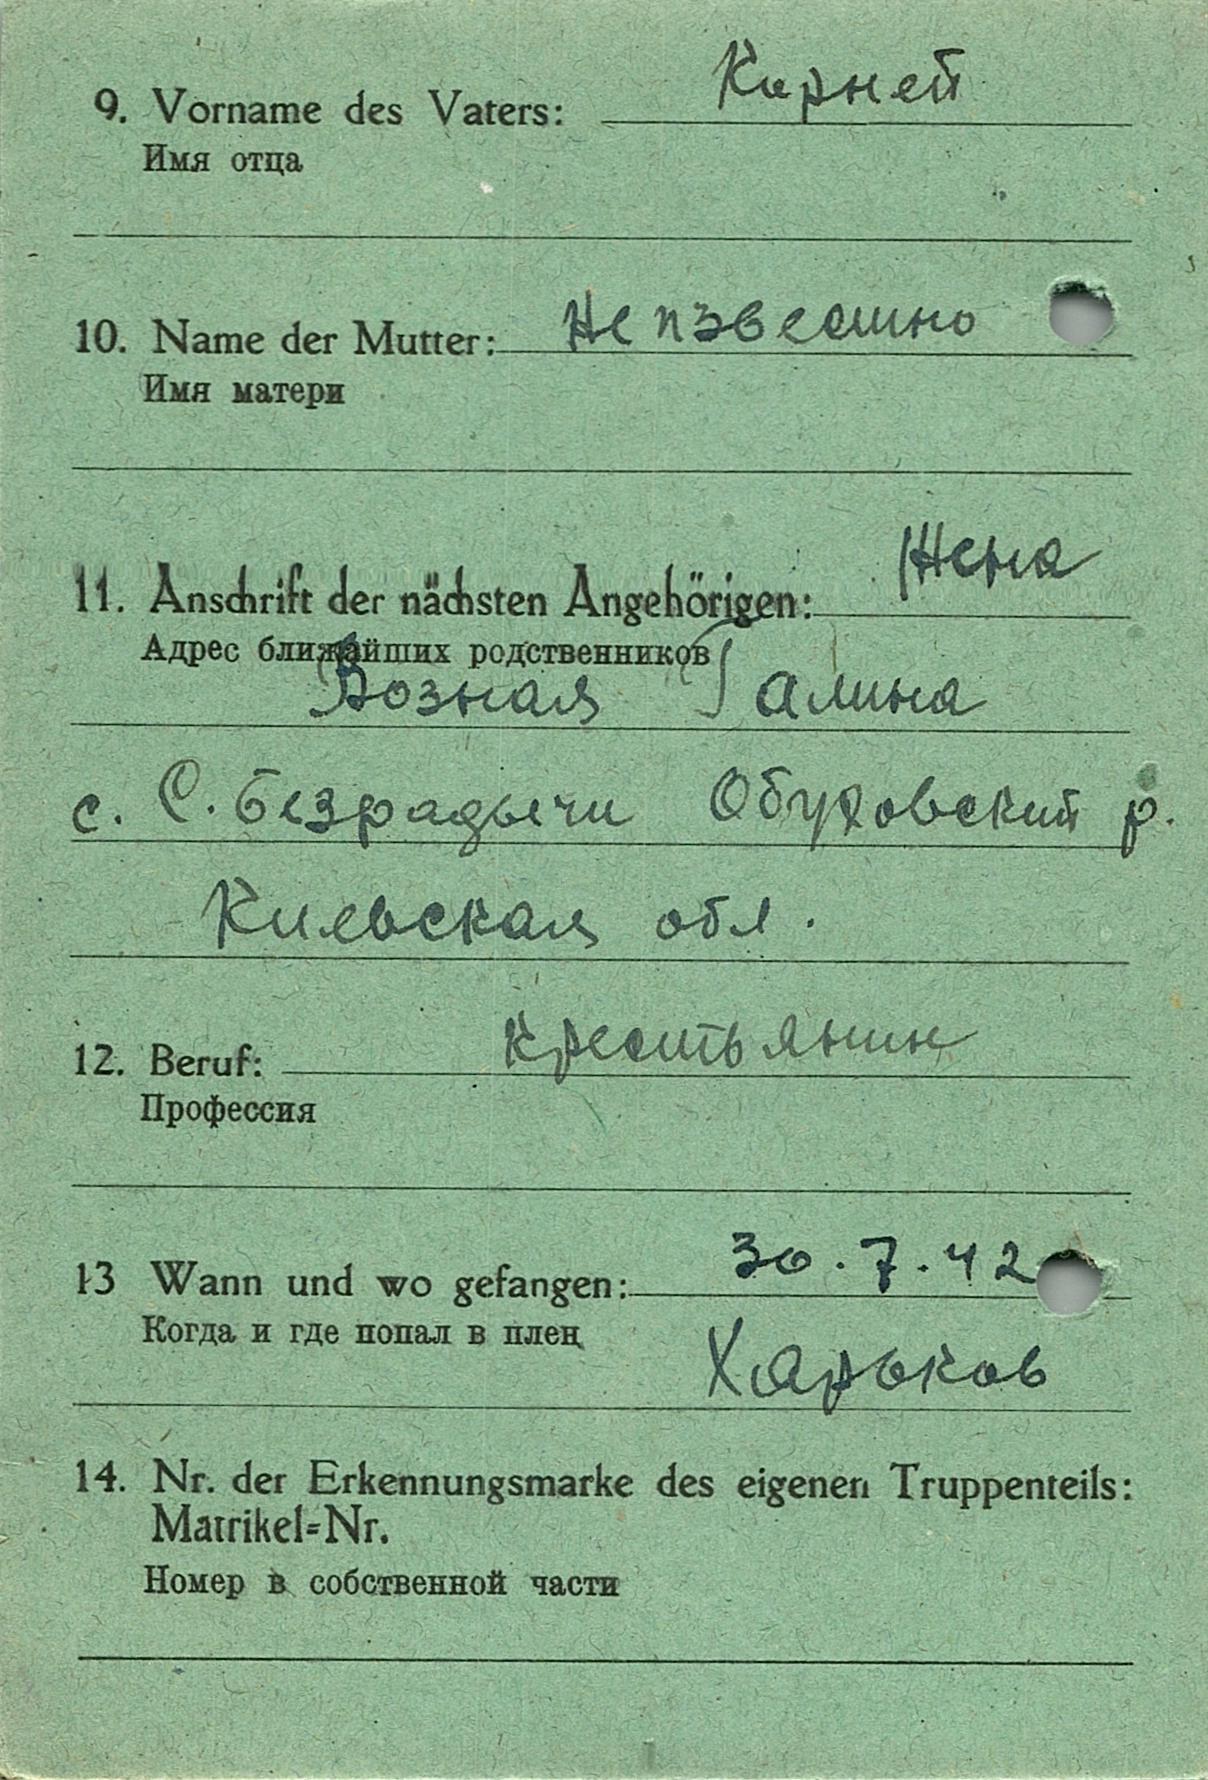 9. Vorname des Vaters: Корней
Имя отца
10. Name der Mutter: Неизвестно
Имя матери
11. Anschrift der nächsten Angehörigen: Жена
Адрес ближайших родственников
Возная Галина
с. С. Безрадычи Обуховский р.
Киевская обл.
12. Beruf: Крестьянин
Профессия
13 Wann und wo gefangen: 30.7.42
Когда и где попал в плен
Харьков
14. Nr. der Erkennungsmarke des eigenen Truppenteils:
Matrikel=Nr.
Номер в собственной части